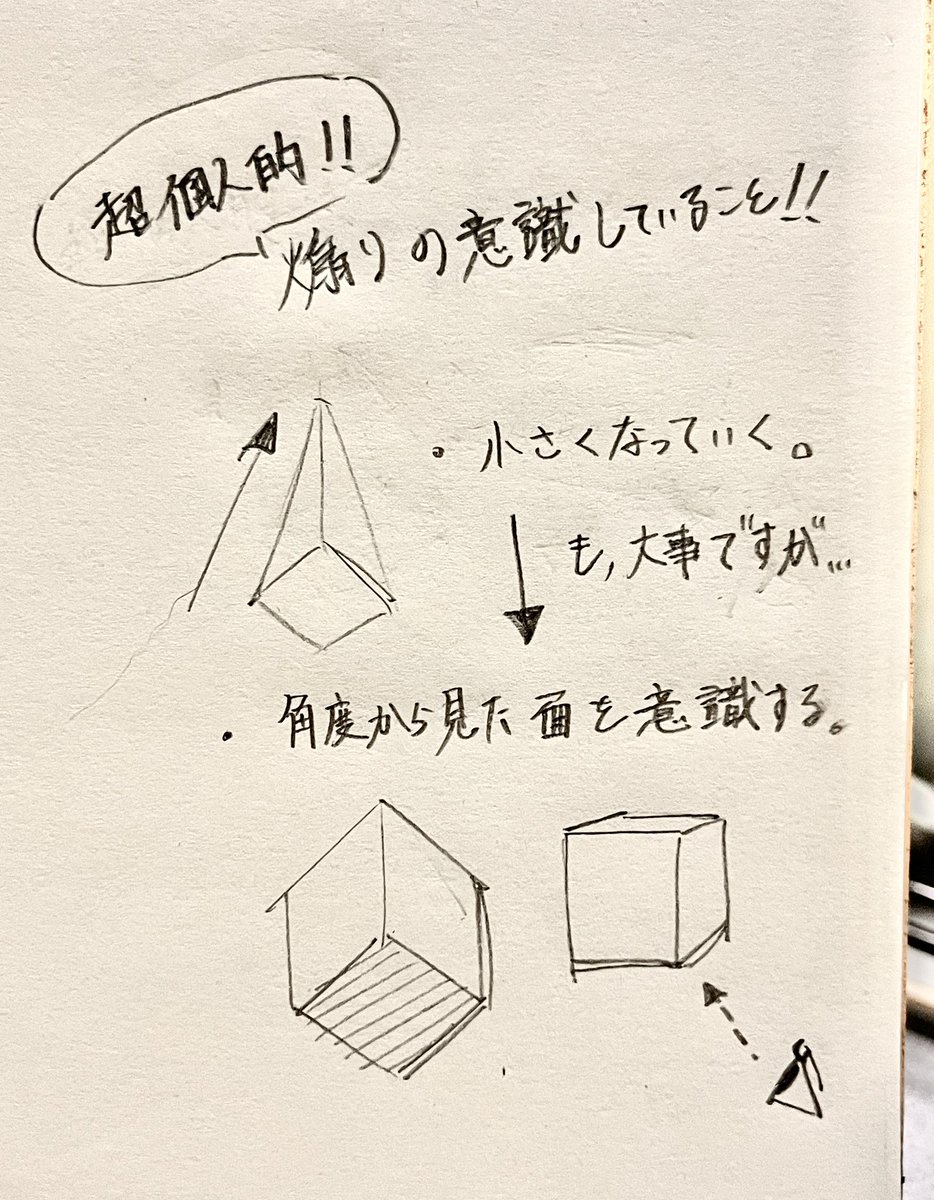 超個人的!!
煽りの意識していること!!
・小さくなっていく。
も,大事ですが…
・角度から見た面を意識する。